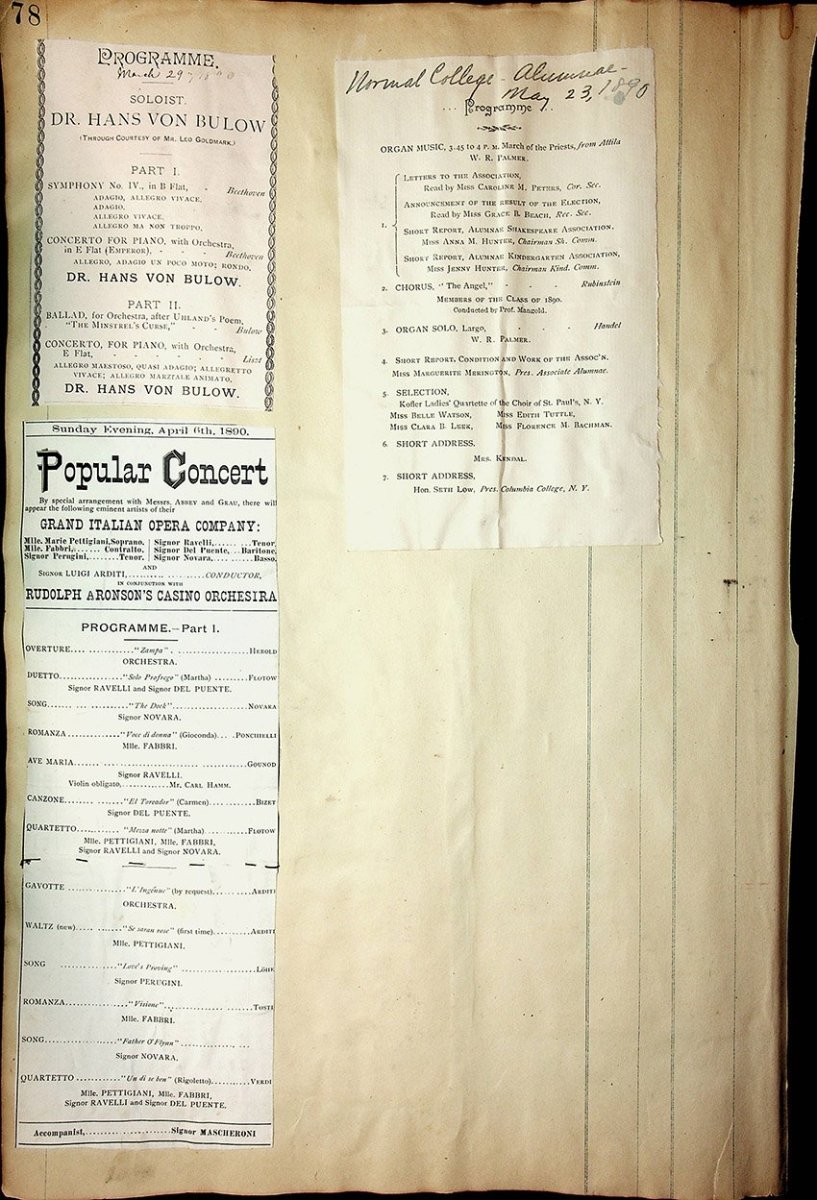 78
PROGRAMME.
March 29, 1890
SOLOIST.
DR. HANS VON BULOW
(THROUGH COURTESY OF MR. LEO GOLDMARK.)
PART I.
SYMPHONY No. IV., in B Flat, - Beethoven
ADAGIO, ALLEGRO VIVACE.
ADAGIO.
ALLEGRO VIVACE.
ALLEGRO MA NON TROPPO.
CONCERTO FOR PIANO, with Orchestra,
in E Flat (EMPEROR), - - - Beethoven
ALLEGRO, ADAGIO UN POCO MOTO; RONDO.
DR. HANS VON BULOW.
PART II.
BALLAD, for Orchestra, after UHLAND'S Poem,
"THE MINSTREL'S CURSE," - - Bulow
CONCERTO, FOR PIANO, with Orchestra,
E Flat, - - - - - - Liszt
ALLEGRO MAESTOSO, QUASI ADAGIO; ALLEGRETTO
VIVACE; ALLEGRO MARZIALE ANIMATO.
DR. HANS VON BULOW.
Sunday Evening, April 6th, 1890.
Popular Concert
By special arrangement with Messrs. ABBEY and GRAU, there will
appear the following eminent artists of their
GRAND ITALIAN OPERA COMPANY:
Mlle. Marie Pettigiani, Soprano, Signor Ravelli,........Tenor,
Mlle. Fabbri,....... Contralto, Signor Del Puente, ..Baritone,
Signor Perugini,........Tenor, Signor Novara,........Basso,
AND
SIGNOR LUIGI ARDITI,....................CONDUCTOR,
IN CONJUNCTION WITH
RUDOLPH ARONSON'S CASINO ORCHESTRA
PROGRAMME.—Part I.
OVERTURE................"Zampa" ................HEROLD
ORCHESTRA.
DUETTO................"Solo Profugo" (Martha) .........FLOTOW
Signor RAVELLI and Signor DEL PUENTE.
SONG................"The Dock"................NOVARA
Signor NOVARA.
ROMANZA.............."Voce di donna" (Gioconda)....PONCHIELLI
Mlle. FABBRI.
AVE MARIA................................GOUNOD
Signor RAVELLI.
Violin obligato,..............Mr. CARL HAMM.
CANZONE................"El Toreador" (Carmen)............BIZET
Signor DEL PUENTE.
QUARTETTO............"Mezza notte" (Martha)...........FLOTOW
Mlle. PETTIGIANI, Mlle. FABBRI,
Signor RAVELLI and Signor NOVARA.
GAVOTTE ..............."L'Ingénue" (by request)..........ARDITI
ORCHESTRA.
WALTZ (new)..........."Se saran rose" (first time).........ARDITI
Mlle. PETTIGIANI.
SONG ..............."Love's Proving" ................LÖHR
Signor PERUGINI.
ROMANZA................"Visione"................TOSTI
Mlle. FABBRI.
SONG................"Father O'Flynn" ................
Signor NOVARA.
QUARTETTO............"Un di se ben" (Rigoletto)..........VERDI
Mlle. PETTIGIANI, Mlle. FABBRI,
Signor RAVELLI and Signor DEL PUENTE.
Accompanist,......................Signor MASCHERONI
Normal College - Alumnae -
May 23, 1890
... Programme ...
ORGAN MUSIC, 3-45 to 4 P. M. March of the Priests, from Attila
W. R. PALMER.
1. LETTERS TO THE ASSOCIATION,
Read by MISS CAROLINE M. PETERS, Cor. Sec.
ANNOUNCEMENT OF THE RESULT OF THE ELECTION,
Read by MISS GRACE B. BEACH, Rec. Sec.
SHORT REPORT, ALUMNAE SHAKESPEARE ASSOCIATION,
MISS ANNA M. HUNTER, Chairman Sh. Comm.
SHORT REPORT, ALUMNAE KINDERGARTEN ASSOCIATION,
MISS JENNY HUNTER, Chairman Kind. Comm.
2. CHORUS, "The Angel," - - - Rubinstein
MEMBERS OF THE CLASS OF 1890.
Conducted by Prof. Mangold.
3. ORGAN SOLO, Largo, - - - Handel
W. R. PALMER.
4. SHORT REPORT, CONDITION AND WORK OF THE ASSOC'N.
MISS MARGUERITE MERINGTON, Pres. Associate Alumnae.
5. SELECTION,
Kofler Ladies' Quartette of the Choir of St. Paul's, N. Y.
MISS BELLE WATSON, MISS EDITH TUTTLE,
MISS CLARA B. LEEK, MISS FLORENCE M. BACHMAN.
6. SHORT ADDRESS,
MRS. KENDAL.
7. SHORT ADDRESS,
HON. SETH LOW, Pres. Columbia College, N. Y.